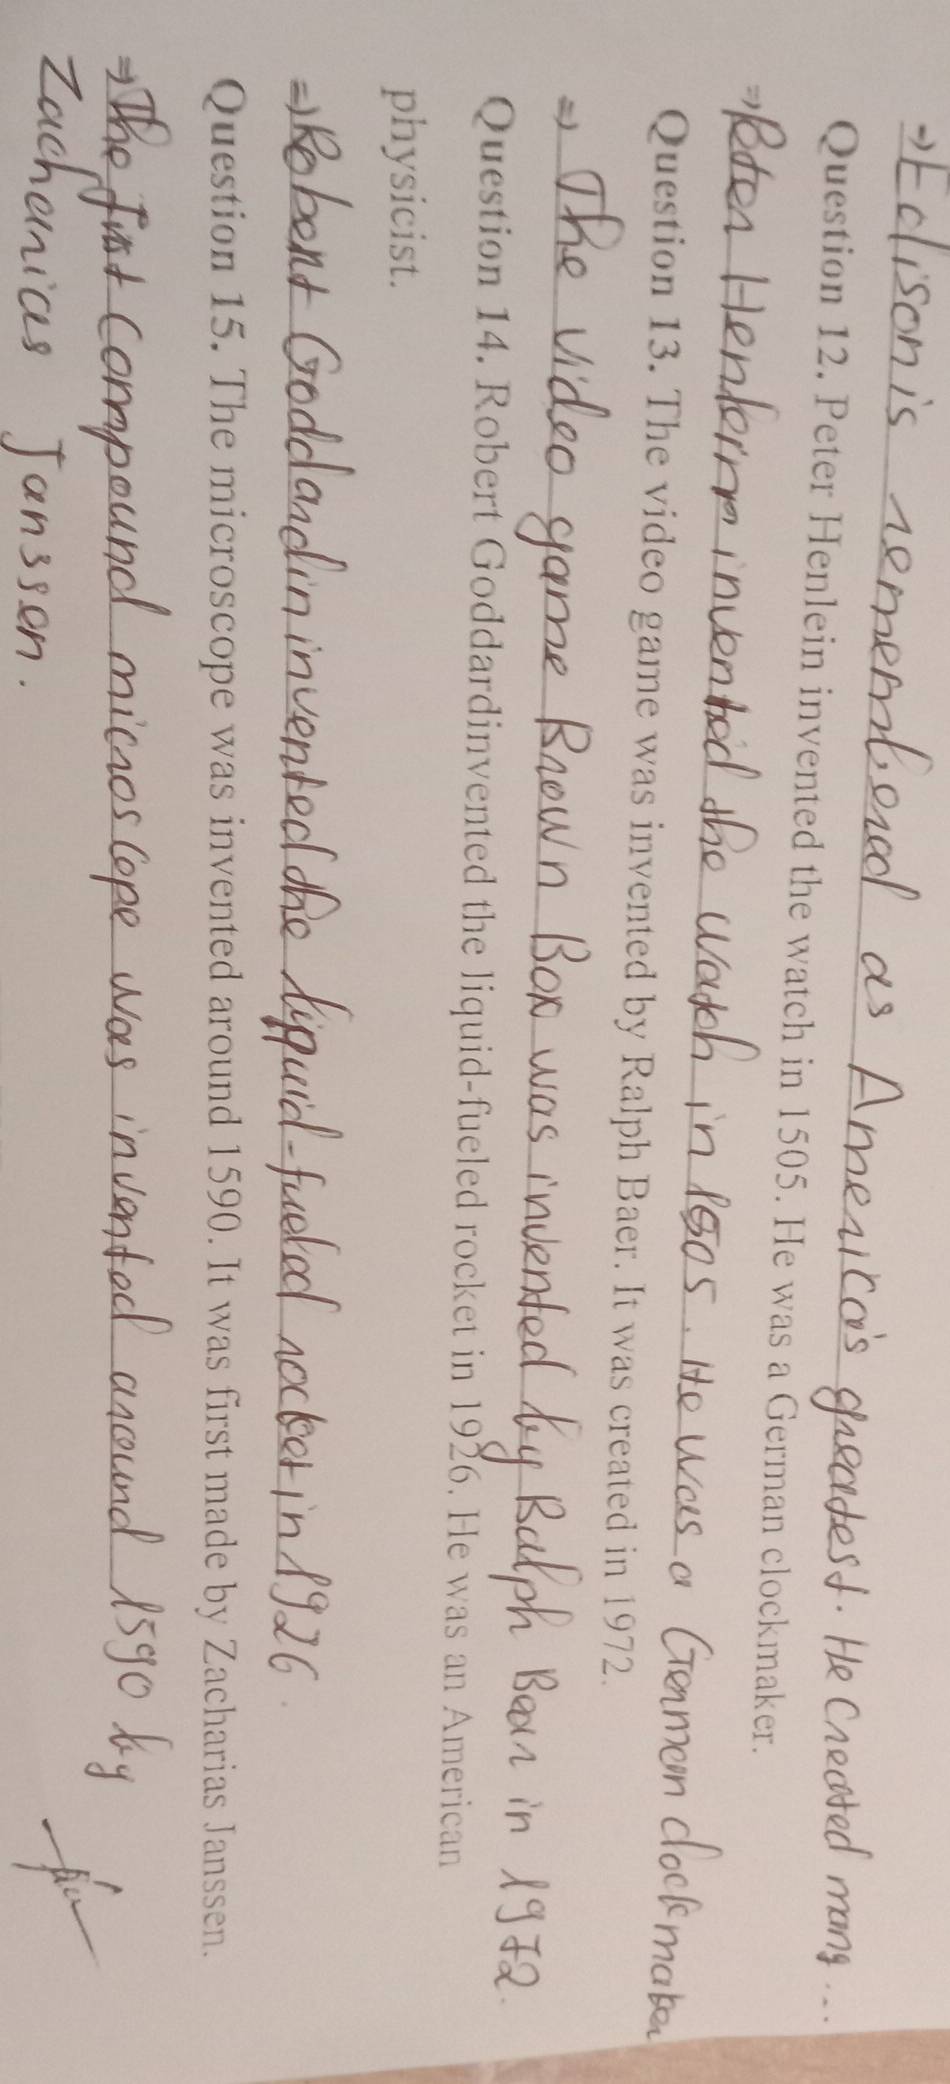 ⇒ Edison is remembered as America's greatest. He Created many ...
Question 12. Peter Henlein invented the watch in 1505. He was a German clockmaker.
⇒ Peter Henlerin invented the watch in 1505. He was a German clockmaker
Question 13. The video game was invented by Ralph Baer. It was created in 1972.
⇒ The video game Brown Box was invented by Ralph Bear in 1972.
Question 14. Robert Goddardinvented the liquid-fueled rocket in 1926. He was an American
physicist.
⇒ Robert Goddardin invented the liquid-fueled rocket in 1926.
Question 15. The microscope was invented around 1590. It was first made by Zacharias Janssen.
⇒ The first Compound microscope was invented around 1590 by
Zacharias Janssen.